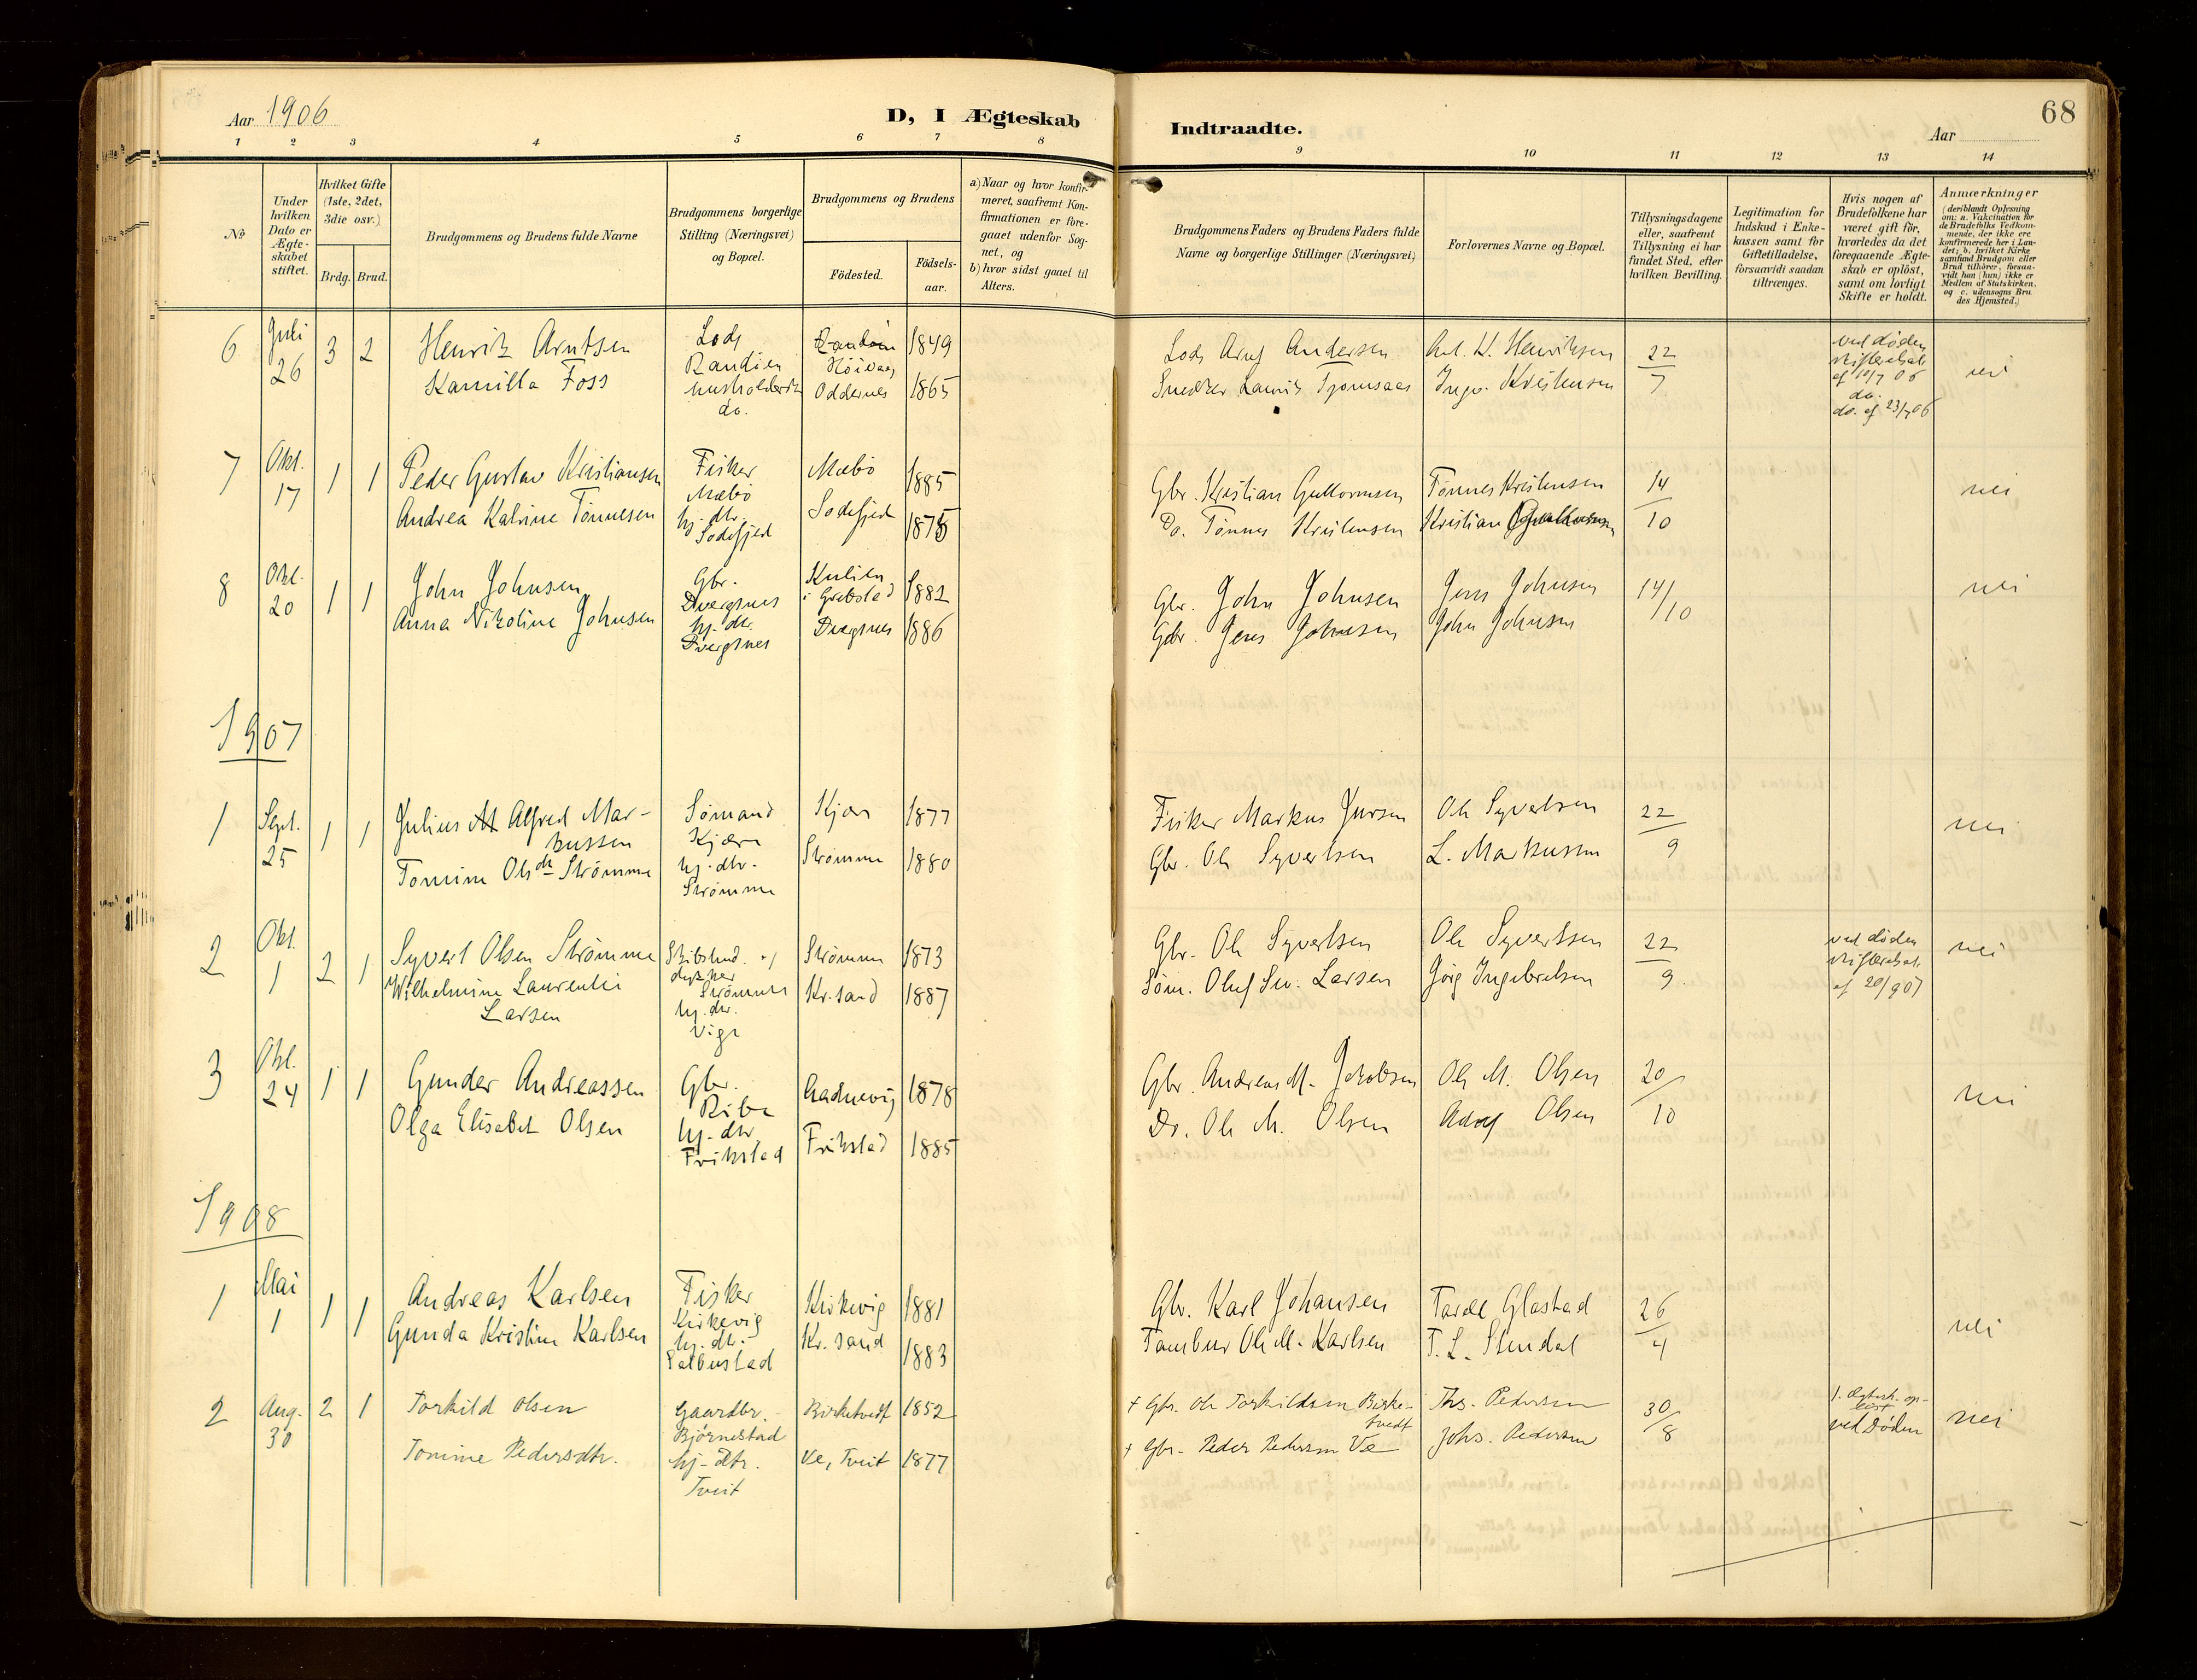 68
Aar 1906
D, I Ægteskab
Indtraadte.
Aar
1 2 3 4 5 6 7 8 9 10 11 12 13 14
No
Under
hvilken
Dato er
Ægte-
skabet
stiftet.
Hvilket Gifte
(1ste, 2det,
3die osv.)
Brdg. Brud.
Brudgommens og Brudens fulde Navne
Brudgommens borgerlige
Stilling (Næringsvei)
og Bopæl.
Brudgommens og Brudens
Fødested.
Fødsels-
aar.
a) Naar og hvor konfir-
meret, saafremt Kon-
firmationen er fore-
gaaet udenfor Sog-
net, og
b) hvor sidst gaaet til
Alters.
Brudgommens Faders og Brudens Faders fulde
Navne og borgerlige Stillinger (Næringsvei)
Forlovernes Navne og Bopæl.
Tillysningsdagene
eller, saafremt
Tillysning ei har
fundet Sted, efter
hvilken Bevilling.
Legitimation for
Indskud i Enke-
kassen samt for
Giftetilladelse,
forsaavidt saadan
tiltrænges.
Hvis nogen af
Brudefolkene har
været gift før,
hvorledes da det
foregaaende Ægte-
skab er opløst,
samt om lovligt
Skifte er holdt.
Anmærkninger
(deriblandt Oplysning
om: a. Vakcination for
de Brudefolks Vedkom-
mende, der ikke ere
konfirmerede her i Lan-
det; b. hvilket Kirke
samfund Brudgom eller
Brud tilhører, forsaa-
vidt han (hun) ikke er
Medlem af Statskirken,
og c. udensogns Bru
des Hjemsted.)
6
Juli
26
3 2
Henrik Arntsen
Kamilla Foss
Lods
Randøen
husholderske
do.
Randøen
Høivaag
Oddernes
1849
1865
Lods Andersen
Snedker Lauritz Tjomsaas
Henriksen
Ingv. Kristensen
22
7
ved døden
skifteattest
af 10/7 06
do.
do. af 23/7 06
nei
7
Okt.
17
1 1
Peder Gustav Kristiansen
Andrea Katrine Tønnesen
Fisker
Mæbø
hj. dtr.
Sodefjed
Mæbø
Sodefjed
1885
1875
Gbr. Kristian Guttormsen
Do. Tønnes Kristensen
Tønnes Kristensen
Kristian Guttormsen
14
10
nei
8
Okt.
20
1 1
John Johnsen
Anna Nikoline Johnsen
Gbr.
Dvergsnes
hj. dtr.
Dvergsnes
Kulien
i Grebstad
Dvergsnes
1882
1886
Gbr. John Johnsen
Gbr. Jens Johnsen
Jens Johnsen
John Johnsen
14/10
nei
1907
1
Sept.
25
1 1
Julius Alfred Mar-
kussen
Tomine Olsdtr Strømme
Sømand
Kjære
hj. dtr.
Strømme
Kjær
Strømme
1877
1880
Fisker Markus Jursen
Gbr. Ole Syvertsen
Ole Syvertsen
L. Markussen
22
9
nei
2
Okt.
1
2 1
Syvert Olsen Strømme
Wilhelmine Laurentie
Larsen
Strømme
hj. dtr.
Vige
Strømme
Kr. sand
1873
1887
Gbr. Ole Syvertsen
Søm. Oluf Larsen
Ole Syvertsen
Jørg Ingebretsen
22
9
ved døden
skifteattest
af 20/9 07
nei
3
Okt.
24
1 1
Gunder Andreassen
Olga Elisabet Olsen
Gbr.
Ribe
hj. dtr.
Frikstad
Frikstad
1878
1885
Gbr. Andreas M. Jakobsen
Do. Ole M. Olsen
Ole M. Olsen
Adolf Olsen
20
10
nei
1908
1
Mai
1
1 1
Andreas Karlsen
Gunda Kristine Karlsen
Fisker
Kirkevig
hj. dtr.
Kirkevig
Kr. sand
1881
1883
Gbr. Karl Johansen
Tambur Ole M. Karlsen
Glastad
T. L. Stendal
26
4
nei
2
Aug.
30
2 1
Torkild Olsen
Tomine Pedersdtr.
Gaardbr.
Bjørnestad
hj. dtr.
Tveit
Birketvedt
Ve, Tveit
1852
1877
+ Gbr. Ole Torkildsen Birke-
tvedt
+ Gbr. Peder Pedersen Ve
Ths. Pedersen
Johs. Pedersen
30
8
1. Ægtesk. op-
løst
ved Døden
nei